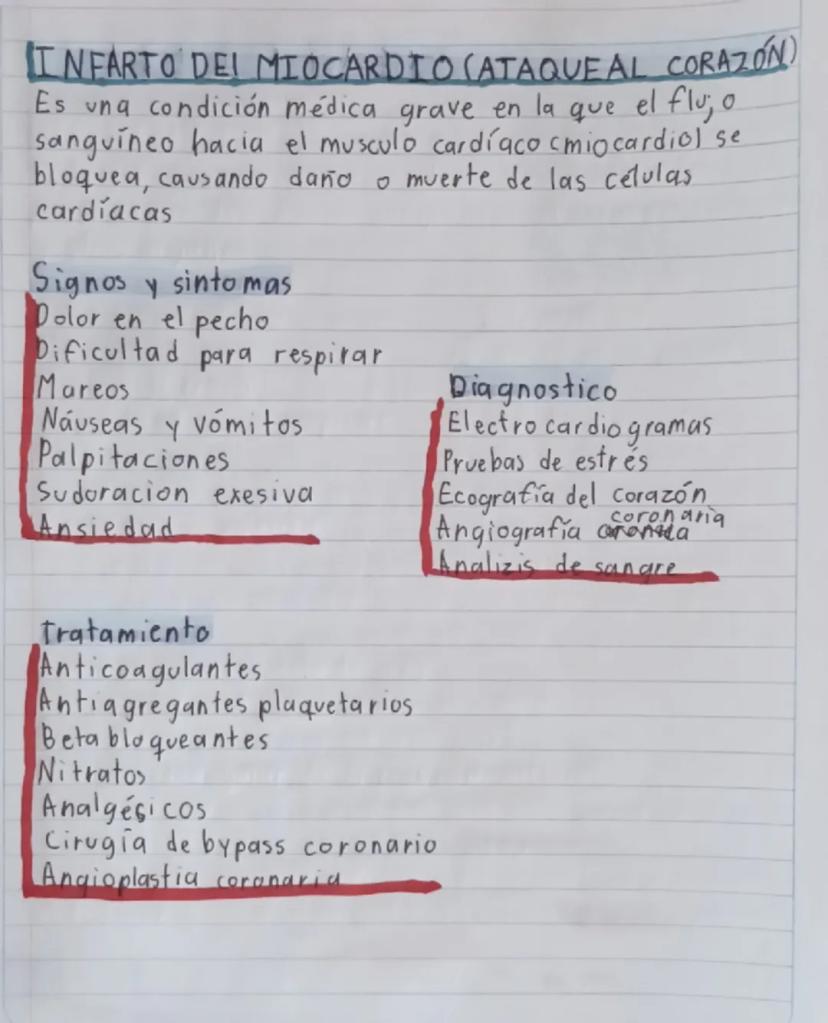 INFARTO DEl MIOCARDIO (ATAQUE AL CORAZÓN)
Es una condición médica grave en la que el flujo
sanguíneo hacia el musculo cardíaco (miocardio) se
bloquea, causando daño o muerte de las células
cardíacas
Signos y sintomas
Dolor en el pecho
Dificultad para respirar
Mareos
Náuseas y vómitos
Palpitaciones
Sudoracion exesiva
Ansiedad
Diagnostico
Electrocardiogramas
Pruebas de estrés
Ecografía del corazón
Angiografía coronaria
Analizis de sangre
Tratamiento
Anticoagulantes
Antiagregantes plaquetarios
Betabloqueantes
Nitratos
Analgésicos
Cirugía de bypass coronario
Angioplastia coronaria